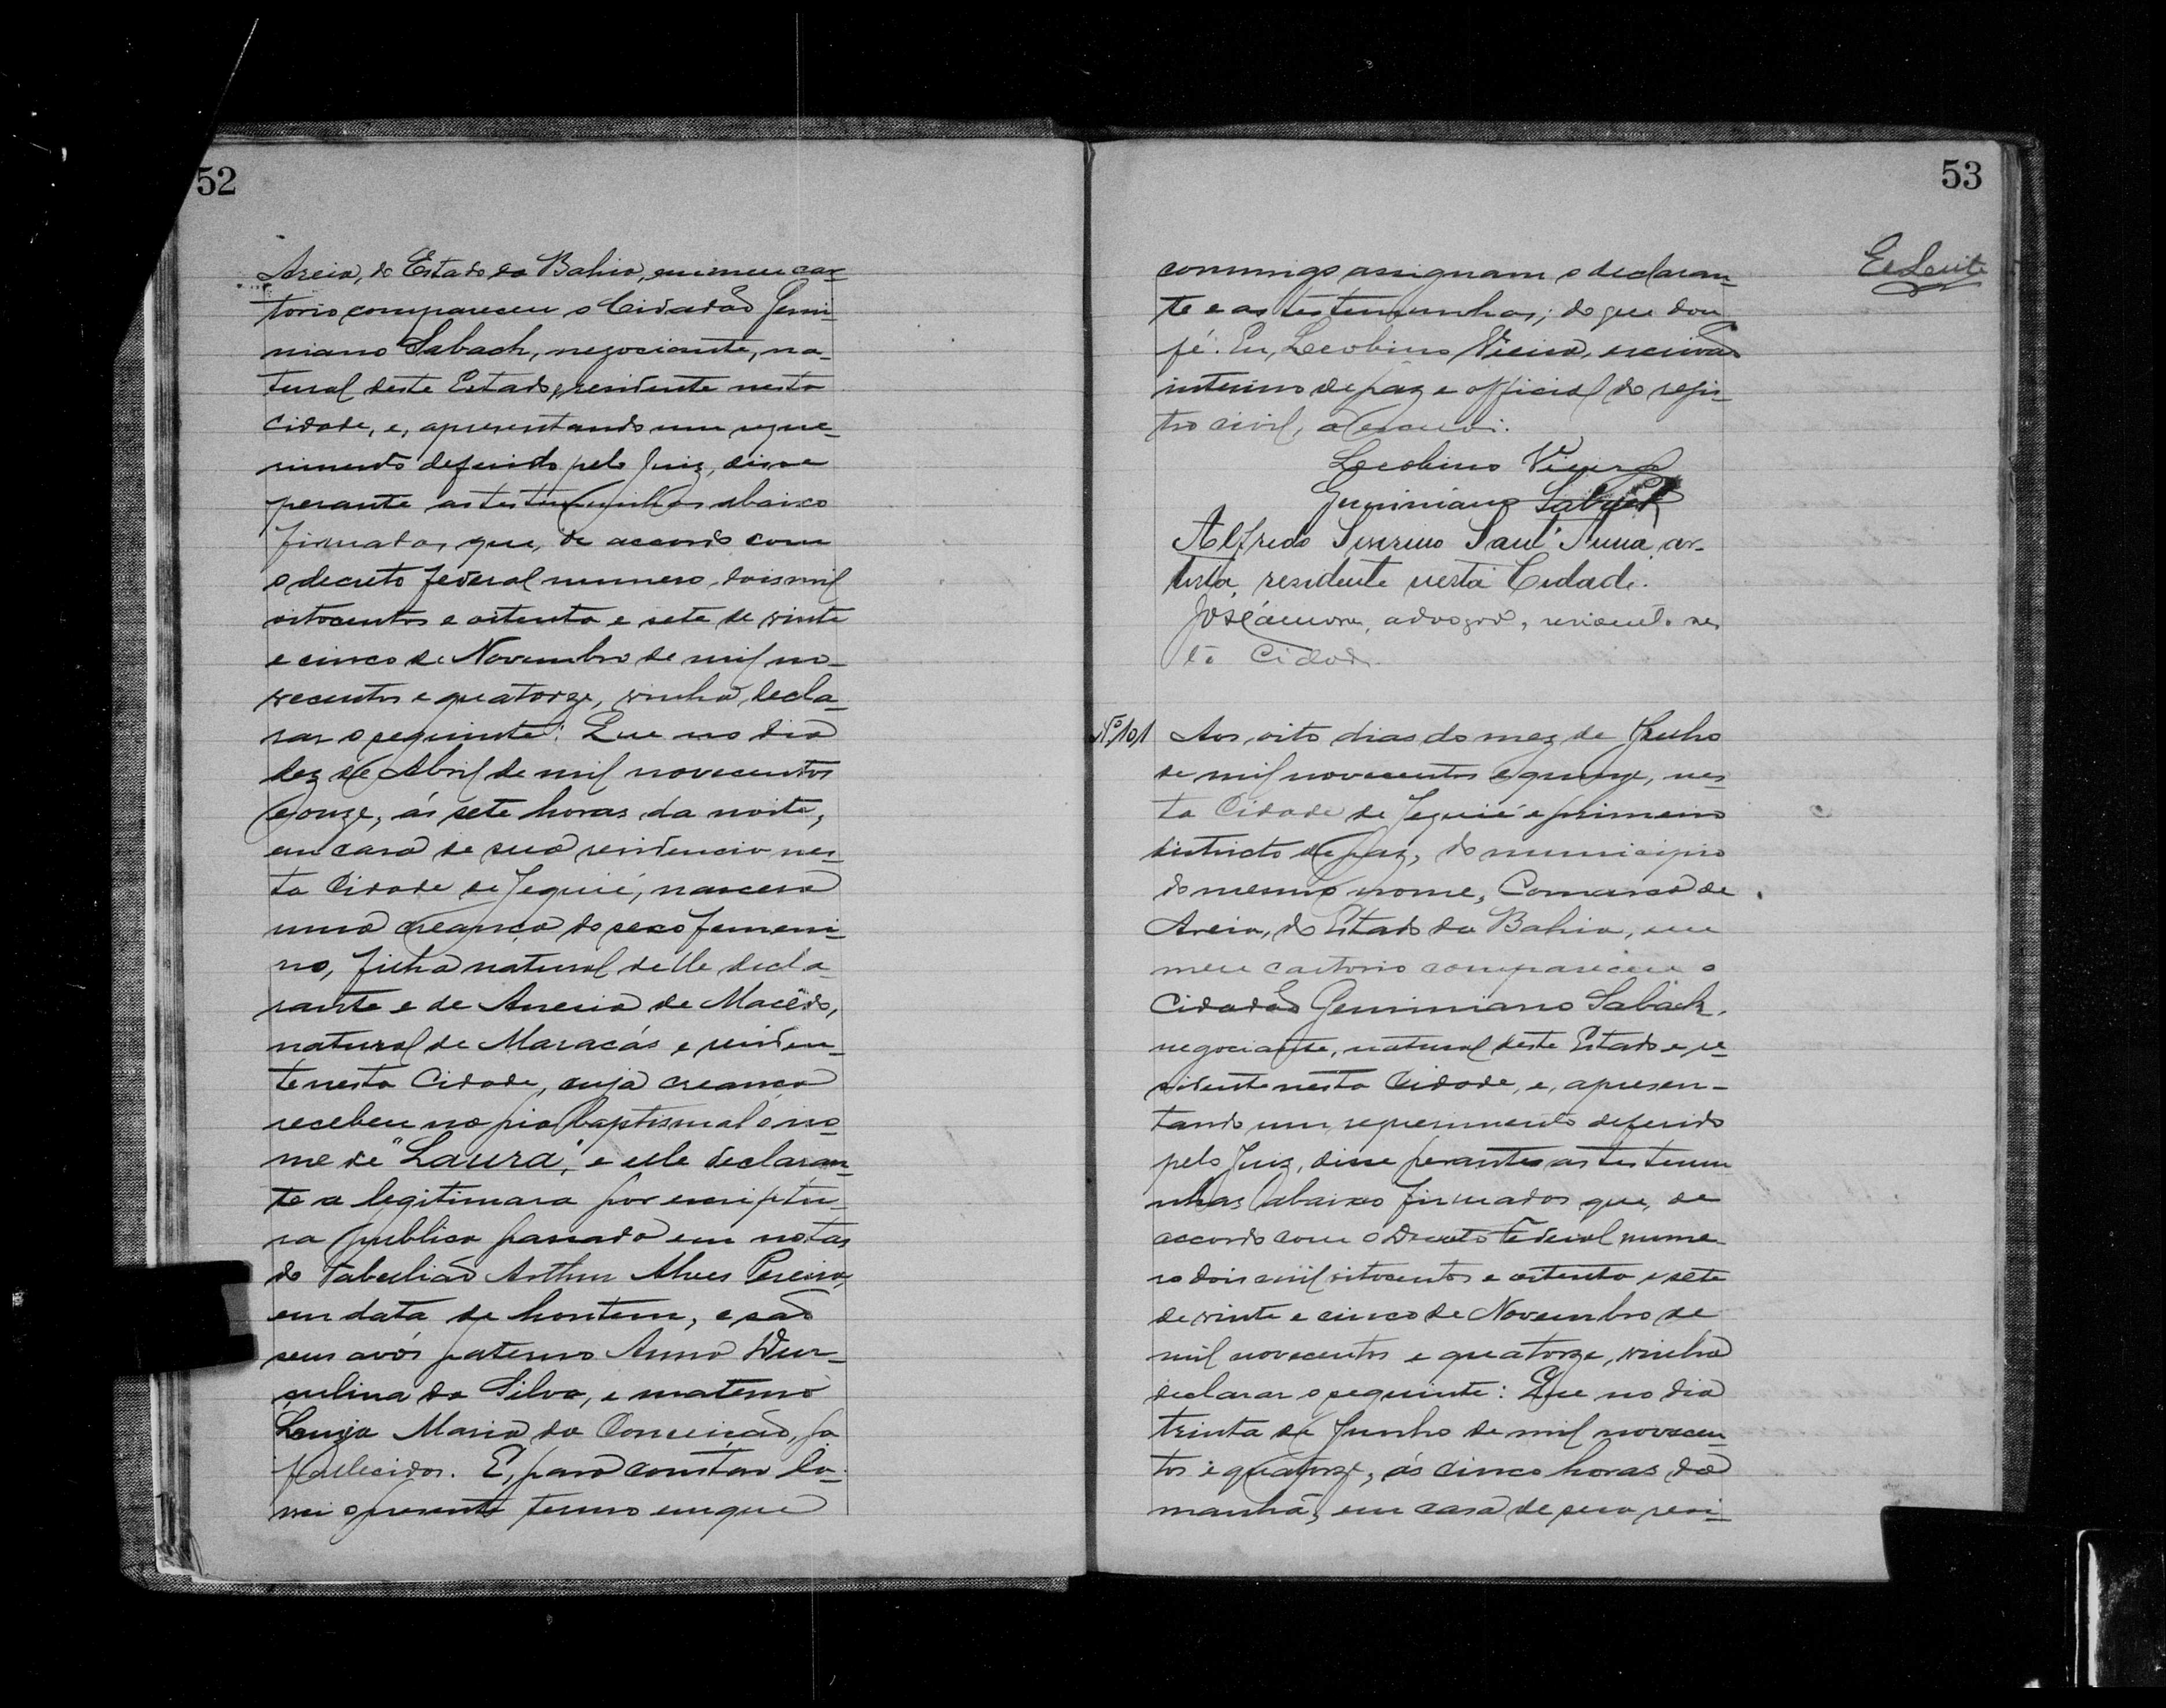 52
Areia, do Estado da Bahia, em meu car-
torio compareceu o Cidadão Gemi-
niano Saback, negociante, na-
tural deste Estado, residente nesta
Cidade, e, apresentando um reque-
rimento deferido pelo Juiz, disse
perante as testemunhas abaixo
firmadas que, de accordo com
o decreto federal numero dois mil
oitocentos e oitenta e sete de vinte
e cinco de Novembro de mil no-
vecentos e quatorze, vinha decla-
rar o seguinte: Que no dia
dez de Abril de mil novecentos
e onze, ás sete horas da noite,
em casa de sua residencia nes-
ta Cidade de Jequié, nascera
uma creança do sexo femeni-
no, filha natural delle decla-
rante e de Anesia de Macêdo,
natural de Maracás e residen-
te nesta Cidade, cuja creança
recebeu na pia baptismal o no-
me de "Laura", e elle declaran-
te a legitimara por escriptu-
ra publica passada em notas
do Tabelião Arthur Alves Pereira,
em data de hontem, e são
seus avós paterno Anna
da Silva, e materno
Maria da Conceição, ja
fallecidos. E, para constar la-
vrei o presente termo em que
53
commigo assignam o declaran-
te e as testemunhas; do que dou
fé. Eu, Lecobino Vieira, escrivão
interino de paz e official do regis-
tro civil, o escrevi.
Lecobino Vieira
Geminiano Saback
Alfredo Sant'Anna, ar-
tista, residente nesta Cidade.
José advogado, residente nes
ta Cidade.
Nº 101 Aos oito dias do mez de Julho
de mil novecentos e quinze, nes-
ta Cidade de Jequié e primeiro
districto de paz, do municipio
do mesmo nome, Comarca de
Areia, do Estado da Bahia, em
meu cartorio compareceu o
Cidadão Geminiano Saback,
negociante, natural deste Estado e re-
sidente nesta Cidade, e, apresen-
tando um requerimento deferido
pelo Juiz, disse perante as testemu
nhas abaixo firmadas que, de
accordo com o Decreto Federal nume-
ro dois mil oitocentos e oitenta e sete
de vinte e cinco de Novembro de
mil novecentos e quatorze, vinha
declarar o seguinte: Que no dia
trinta de Junho de mil novecen-
tos e quatorze, ás cinco horas da
manhã, em casa de sua resi-